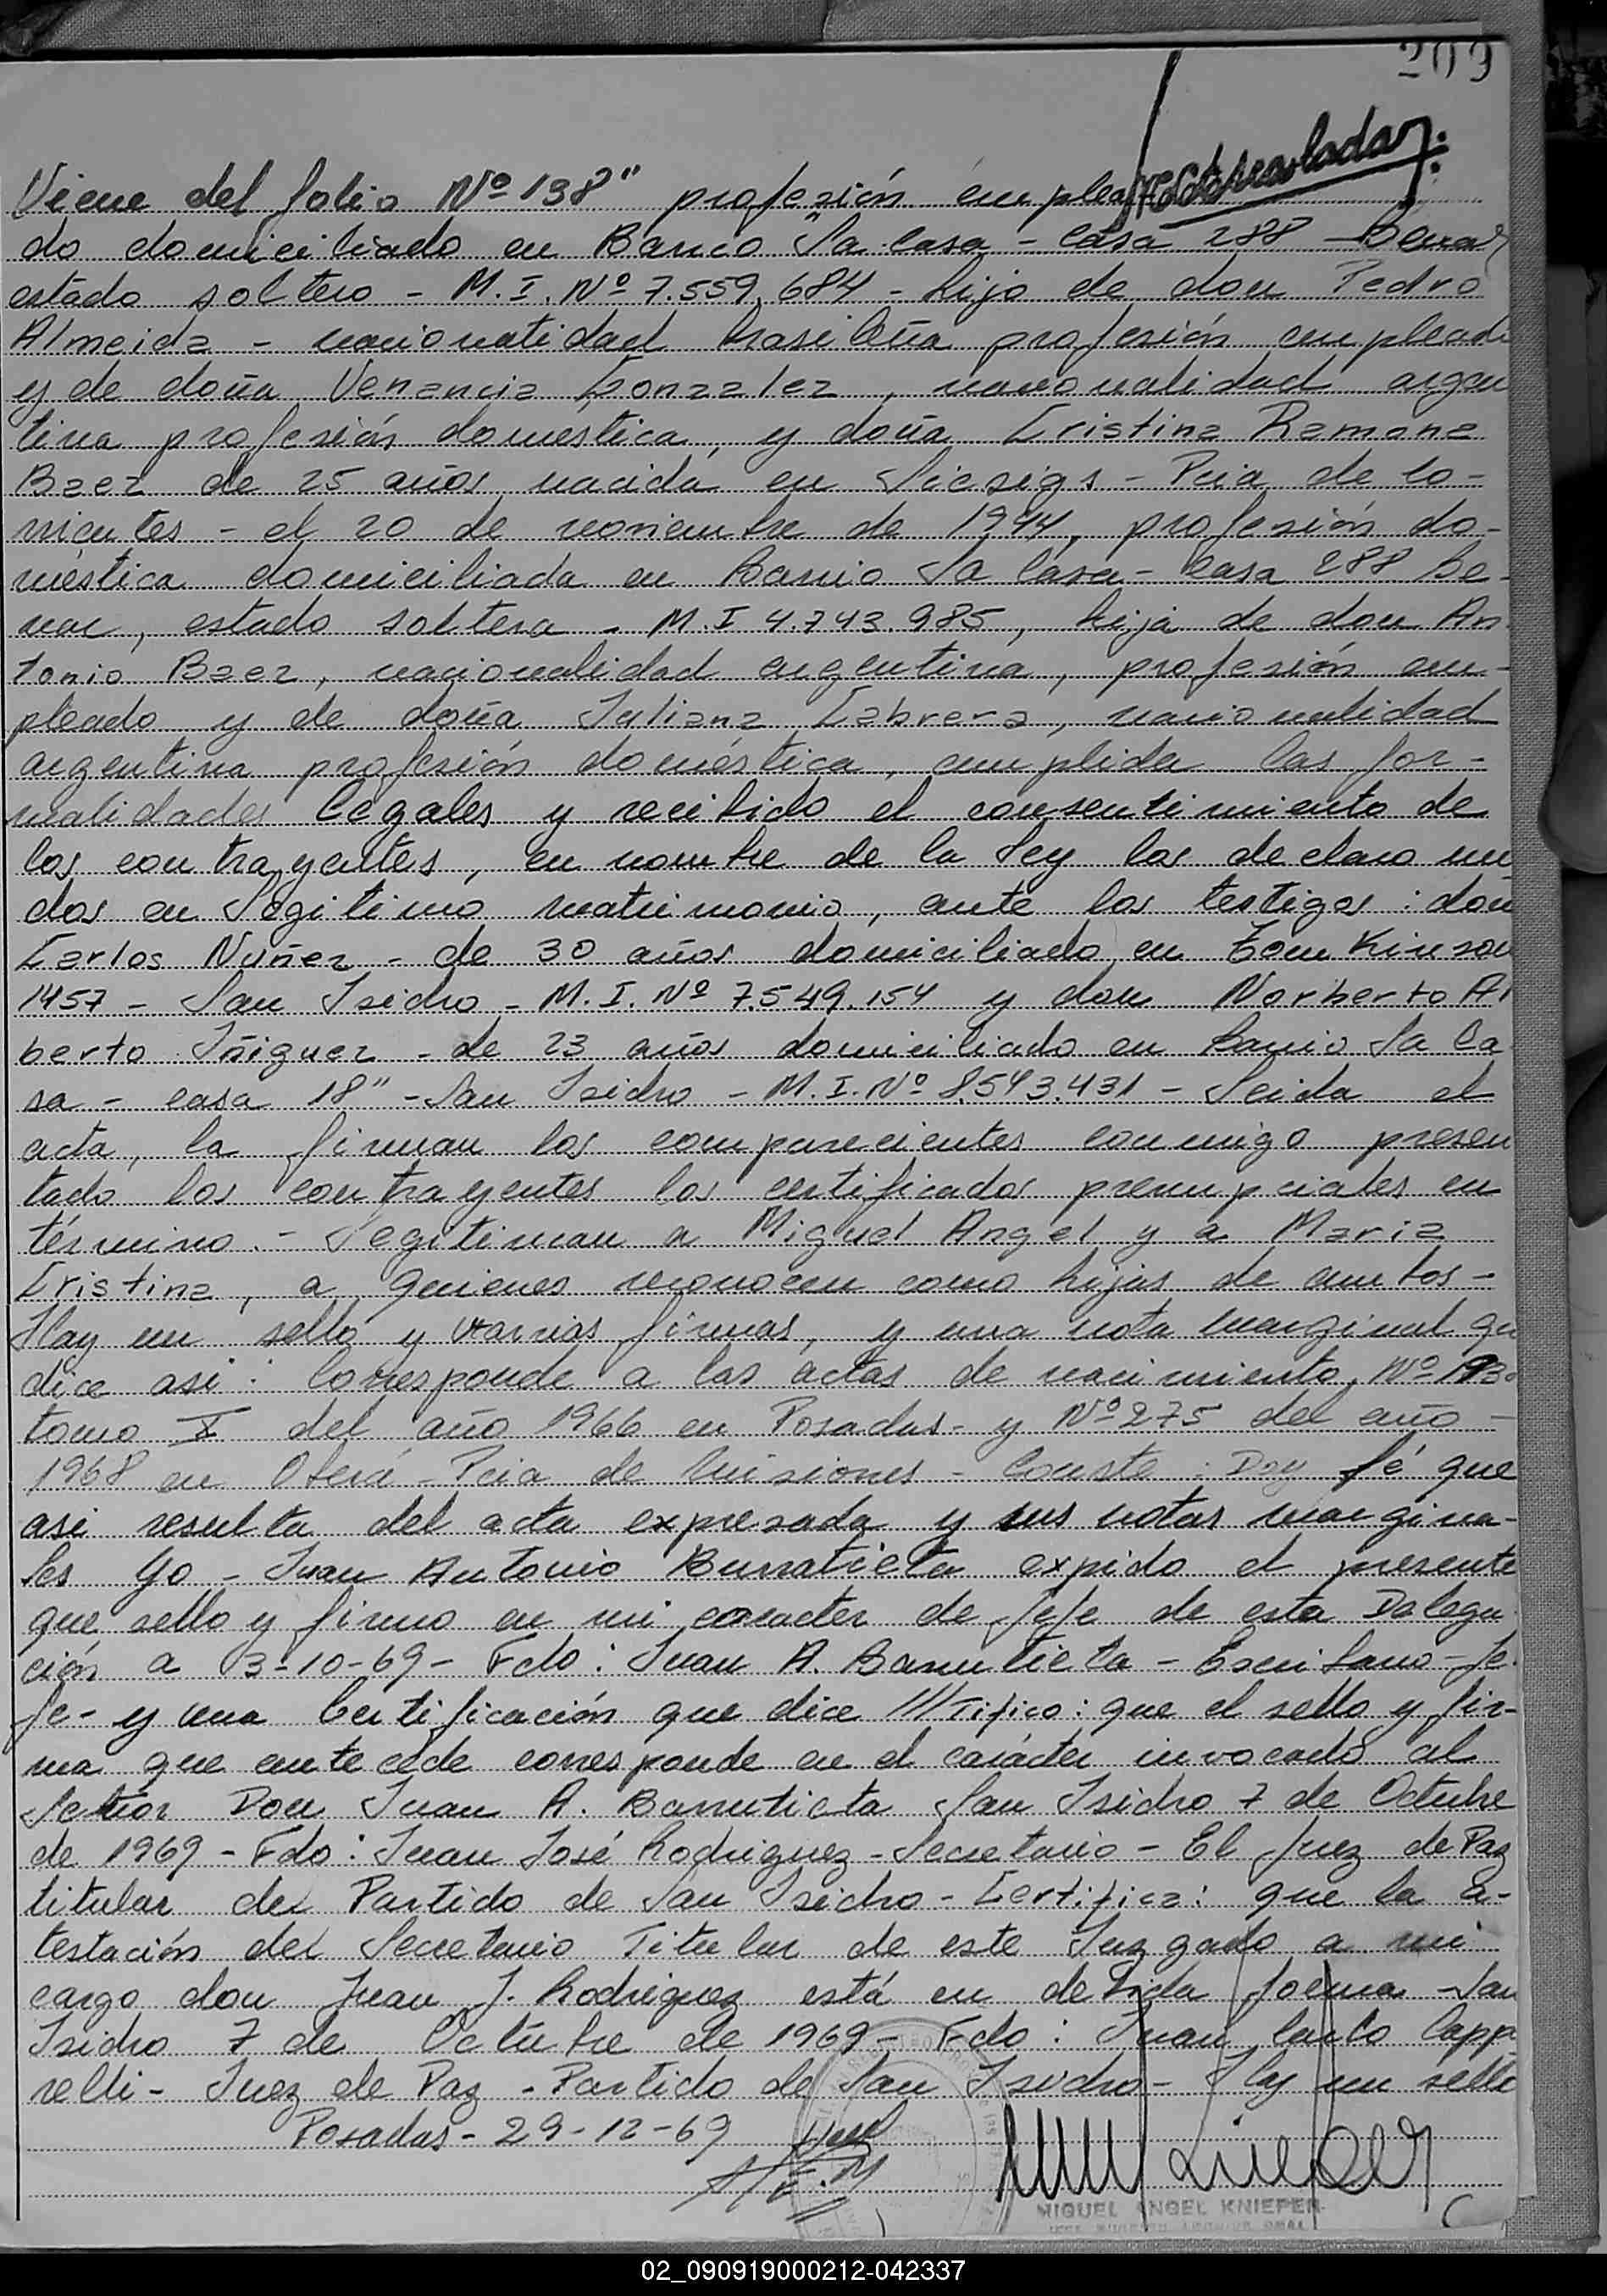 209
Viene del folio Nº 198" profesión emplea
do domiciliado en Barrio La Casa - Casa 288 - Becar
estado soltero - M.I. Nº 7.559.684 - hijo de don Pedro
Almeida - nacionalidad brasileña profesión empleado
y de doña Venancia Gonzalez, nacionalidad argen
tina profesión doméstica, y doña Cristina Ramona
Baez de 25 años, nacida en - Pcia de Co-
rrientes - el 20 de noviembre de 1944, profesión do-
méstica domiciliada en Barrio La Casa - Casa 288 Be-
car, estado soltera - M.I 4.743.985, hija de don An
tonio Baez, nacionalidad argentina, profesión em-
pleado y de doña Juliana Cabrera, nacionalidad
argentina profesión doméstica, cumplida las for-
malidades legales y recibido el consentimiento de
los contrayentes, en nombre de la Ley los declaro uni
dos en Legitimo matrimonio, ante los testigos: don
Carlos Nuñez - de 30 años domiciliado en Tom Kinson
1457 - San Isidro - M.I. Nº 7.549.154 y don Norberto Al
berto Iñiguez - de 23 años domiciliado en Barrio La Ca
sa - casa 18" - San Isidro - M.I. Nº 8.543.431 - Leida el
acta, la firman los comparecientes conmigo presen
tado los contrayentes los certificados prenupciales en
término. - Legitiman a Miguel Angel y a Maria
Cristina, a quienes reconocen como hijos de ambos -
Hay un sello y varias firmas, y una nota marginal qu
dice asi: Corresponde a las actas de nacimiento, Nº
tomo X del año 1966 en Posadas - y Nº 275 del año -
1968 en Oberá - Pcia de Misiones - Conste: Doy fé que
asi resulta del acta expresada y sus notas margina-
les Yo - Juan Antonio Barrutieta expido el presente
que sello y firmo en mi caracter de Jefe de esta Delega
ción a 3-10-69 - Fdo: Juan A. Barrutieta - Escribano - Je
fe - y una Certificación que dice ///Tifico: que el sello y fir-
ma que antecede corresponde en el carácter invocado al
Señor Don Juan A. Barrutieta San Isidro 7 de Octubre
de 1969 - Fdo: Juan José Rodriguez - Secretario - El Juez de Paz
titular del Partido de San Isidro - Certifica: que la a-
testación del Secretario Titular de este Juzgado a mi
cargo don Juan J. Rodriguez está en debida forma - San
Isidro 7 de Octubre de 1969 - Fdo: Juan Carlo Capp
relli - Juez de Paz - Partido de San Isidro - Hay un sello
Posadas - 29-12-69
MIGUEL ANGEL KNIEPER
02_090919000212-042337